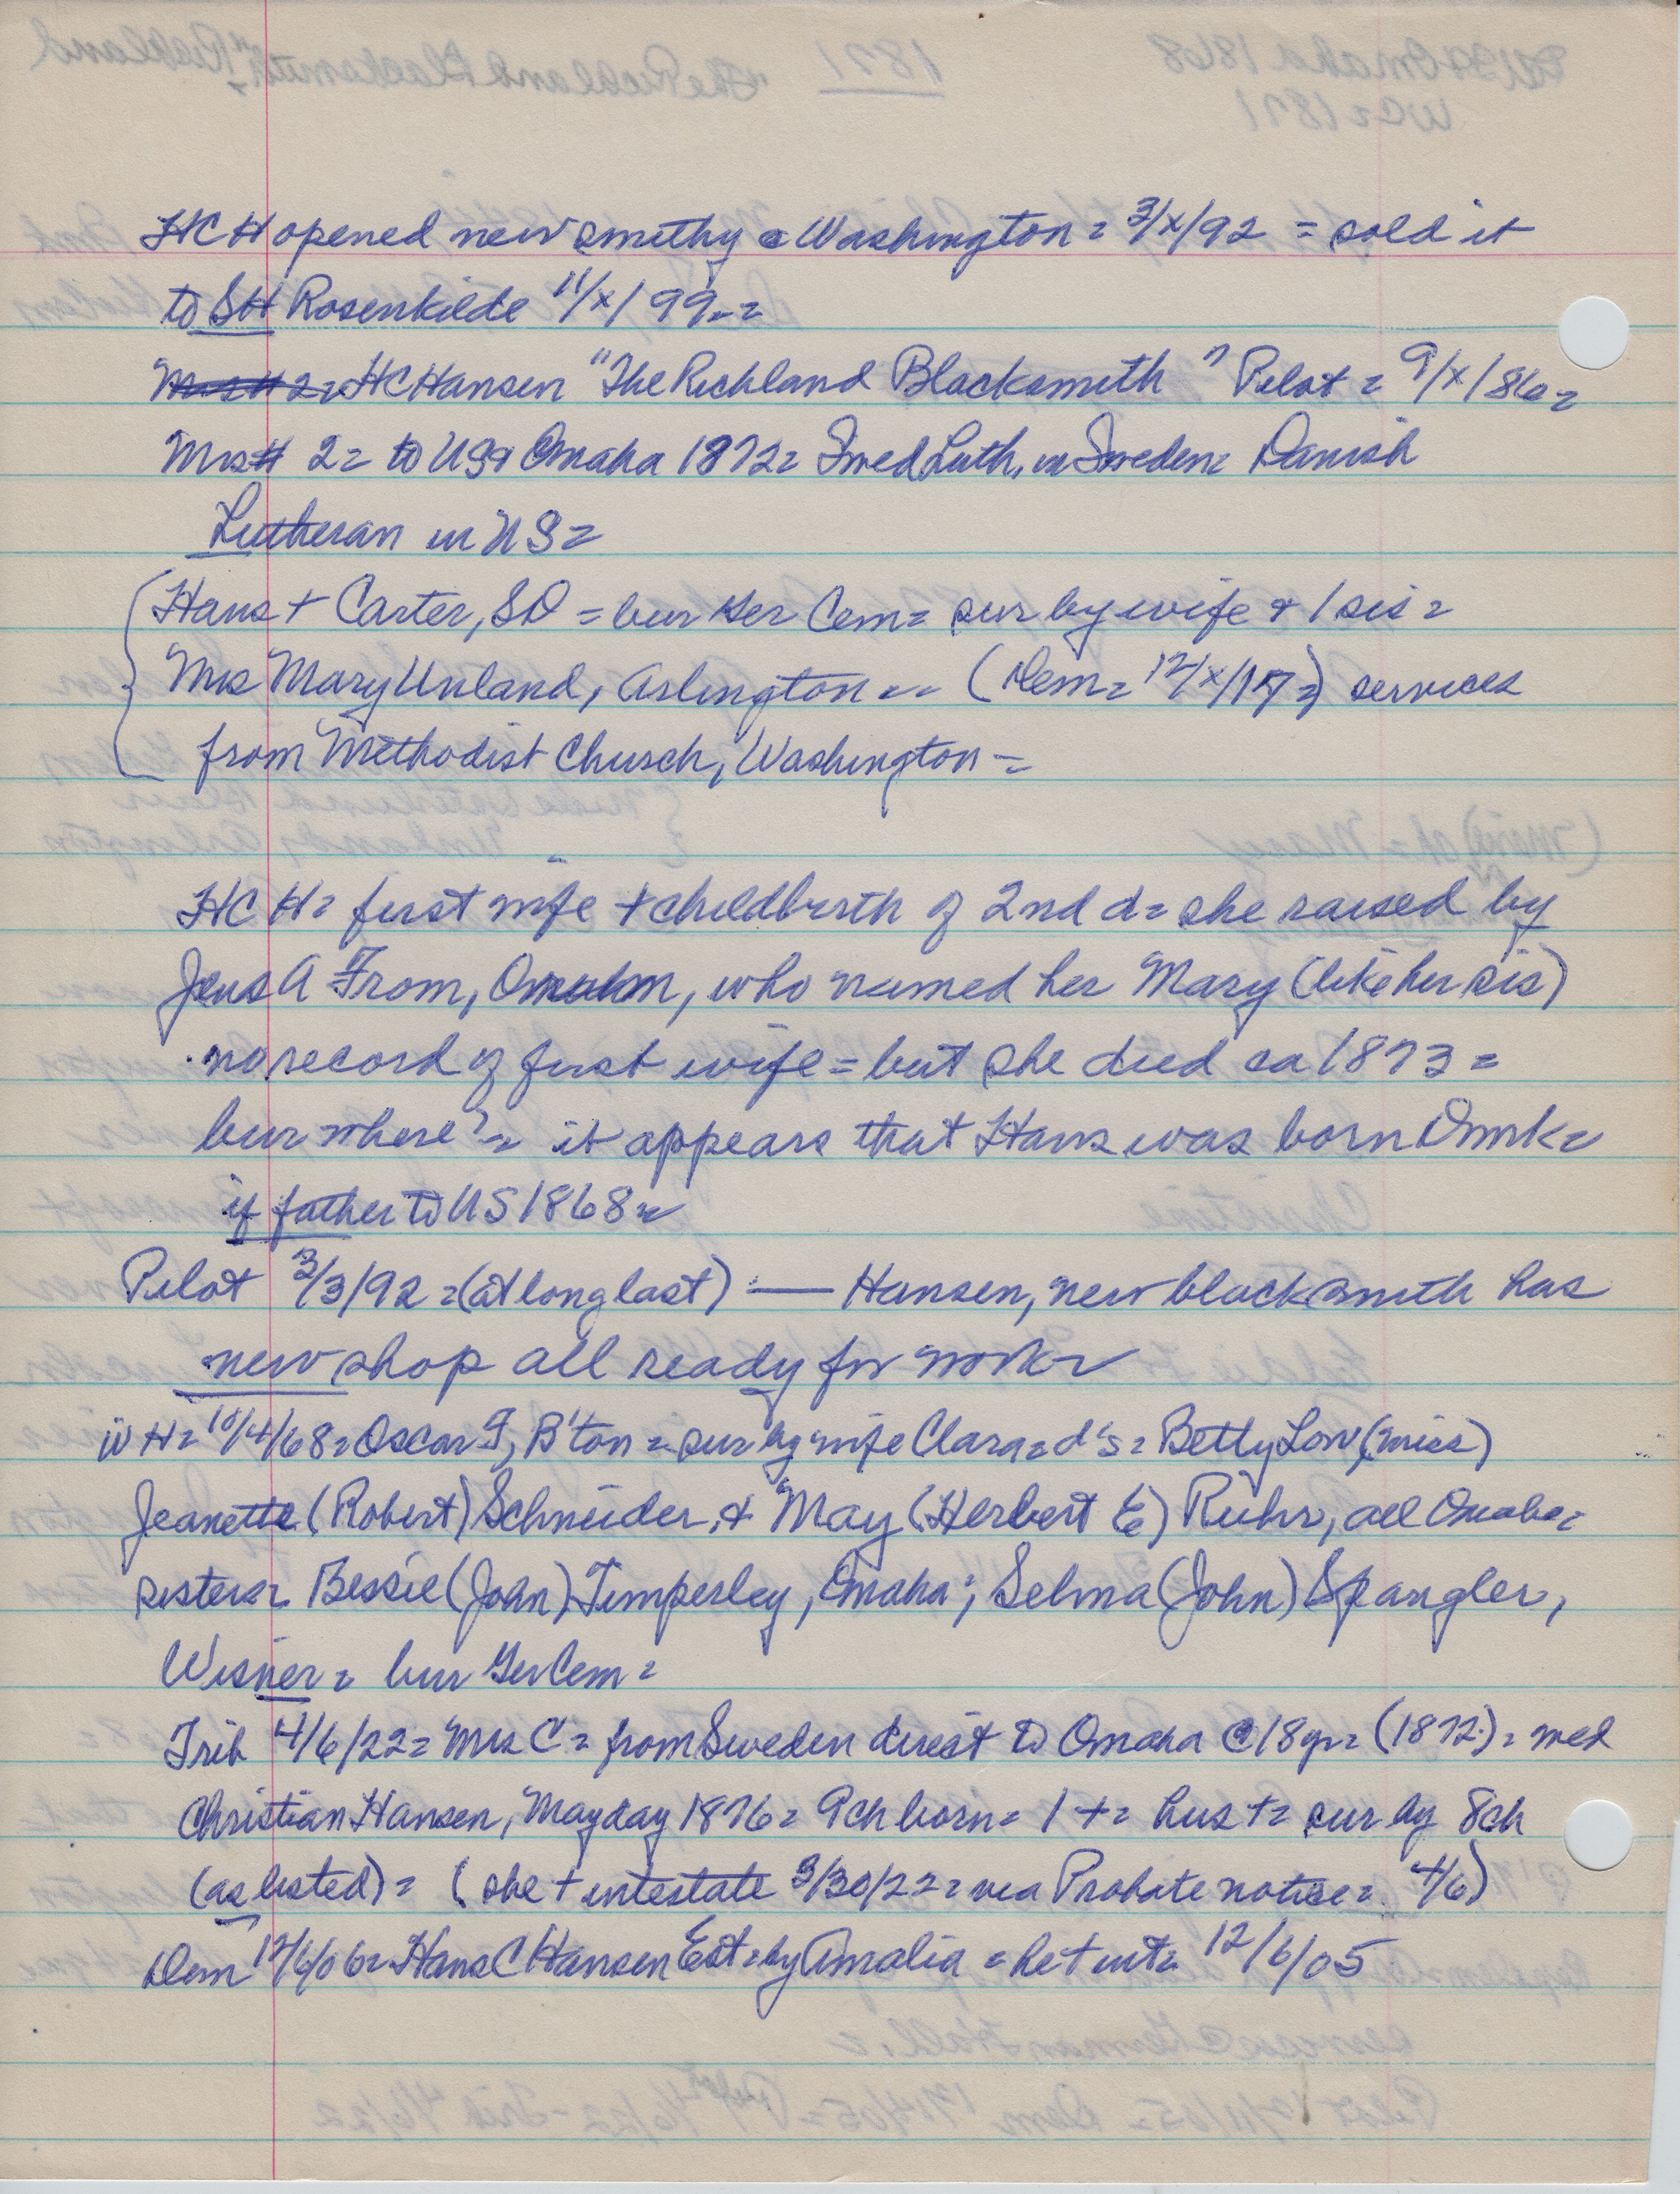 HCH opened new smithy @ Washington = 3/x/92 = sold it
to SH Rosenkilde 11/x/99 - =
HC Hansen "The Richland Blacksmith" Pilot = 9/x/86 =
Mrs H 2 = to USA Omaha 1872 = Swed Luth, in Sweden = Danish
Lutheran in US =
Hans + Carter, SD = bur Ger Cem = sur by wife + 1 sis =
Mrs Mary Unland, Arlington - - (Dem = 12/x/17 =) services
from Methodist Church, Washington =
HCH = first wife + childbirth of 2nd d = she raised by
Jens A From, who named her Mary (like her sis)
no record of first wife = but she died ca 1873 =
bur where? = it appears that Hans was born Dmk =
if father to US 1868 =
Pilot 3/3/92 = (at long last) — Hansen, new blacksmith has
new shop all ready for work
WH = 10/4/68 = Oscar F, B'ton = sur by wife Clara = d's = Betty Lou (miss)
Jeanette (Robert) Schneider, + May (Herbert E) Ruhr, all Omaha =
sisters = Bessie (John) Timperley, Omaha; Selma (John) Spangler,
Wisner = bur Ger Cem =
Trib 4/6/22 = Mrs C = from Sweden direct to Omaha @ 18 yr = (1872) = med
Christian Hansen, Mayday 1876 = 9 ch born = 1 + = hus + = sur by 8 ch
(as listed) = (she + intestate 3/30/22 = via Probate notice = 4/6)
Dem 12/6/06 = Hans C Hansen Est = by Amalia = he + int = 12/6/05